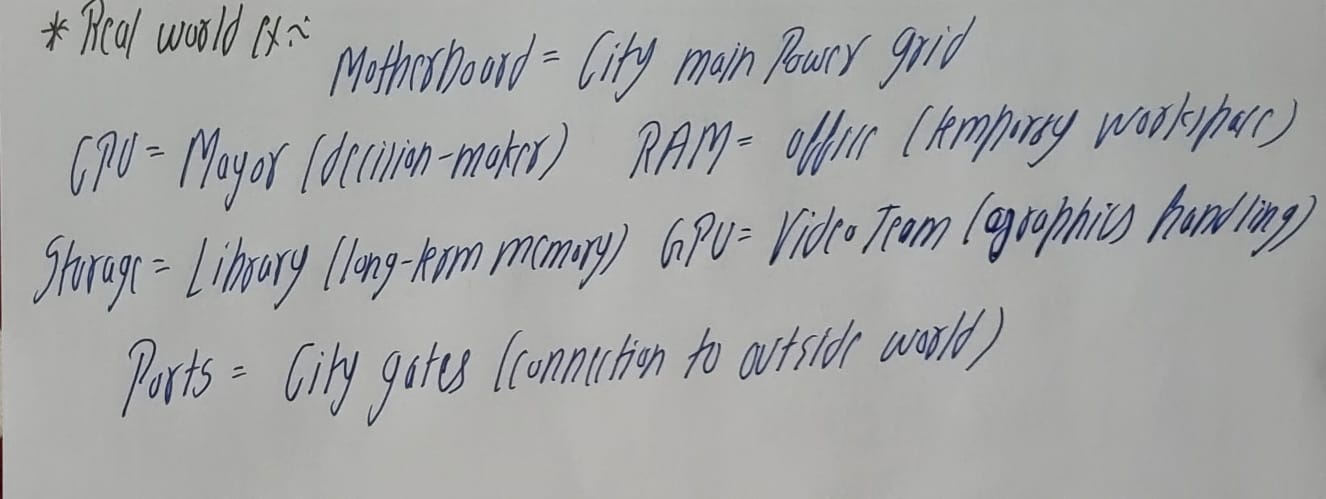 * Real world Ex:-
Motherboard = City main Power grid
CPU = Mayor (decision-maker) RAM = office (temporary workspace)
Storage = Library (long-term memory) GPU = Video Team (graphics handling)
Ports = City gates (connection to outside world)